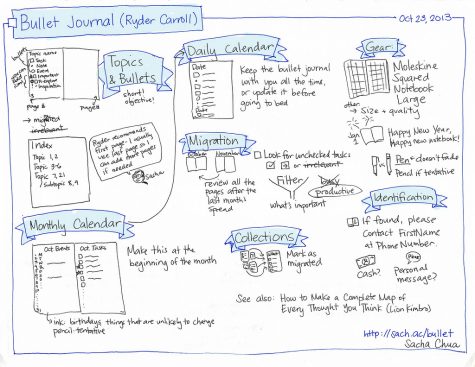 Bullet Journal (Ryder Carroll)
Oct 23, 2013
Topics
& Bullets
short!
objective!
Topic name
Task
Note
Event
Important
Inspiration
page 8
migrated
irrelevant
Index
Topic 1, 2
Topic 3-6
Topic 7, 21
Subtopic 8, 9
Ryder recommends
first page. I usually
use last page so I
can add short pages
if needed
@sacha
Monthly Calendar
Oct Events
Oct Tasks
Make this at the
beginning of the month
ink: birthdays, things that are unlikely to change
pencil: tentative
Daily Calendar
Date
Date
Keep the bullet journal
with you all the time,
or update it before
going to bed
Migration
October
November
review all the
pages after the
last monthly
spread
Look for unchecked tasks
or irrelevant
Filter
what's important
busy
productive
Collections
Mark as
migrated
See also: How to Make a Complete Map of
Every Thought You Think (Lion Kimbro)
Gear
Moleskine
Squared
Notebook
Large
other
Size + quality
Jan
1
Happy New Year,
Happy new notebook!
vs
Pen doesn't fade
Pencil if tentative
Identification
If found, please
Contact FirstName
at Phone Number.
Cash?
Personal
message?
http://sach.ac/bullet
Sacha Chua